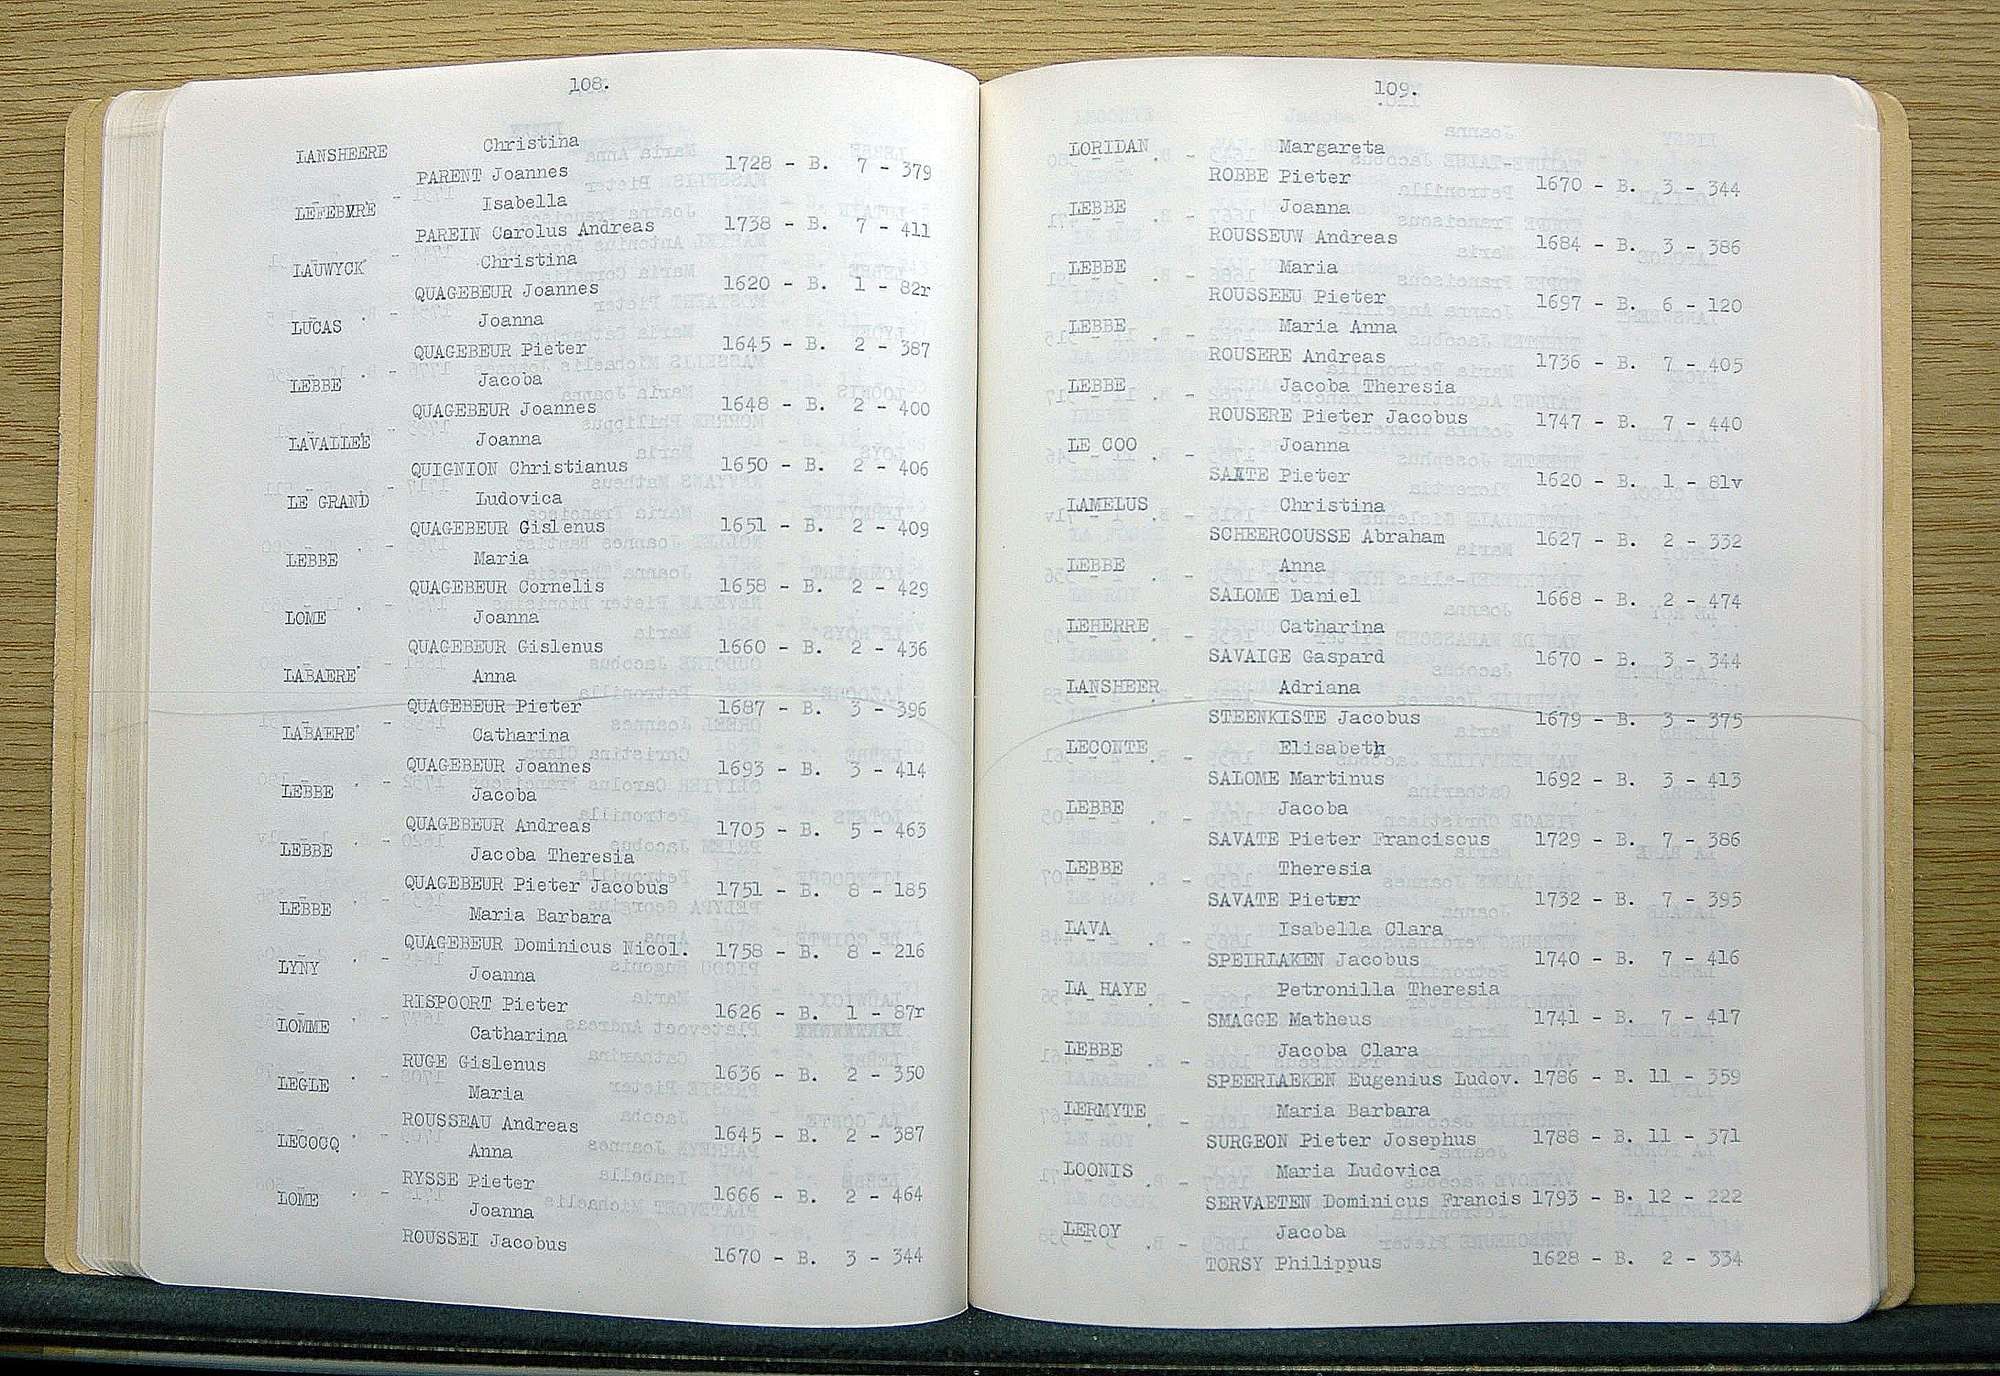 108.
LANSHEERE Christina
PARENT Joannes 1728 - B. 7 - 379
LEFEBVRE Isabella
PAREIN Carolus Andreas 1738 - B. 7 - 411
LAUWYCK Christina
QUAGEBEUR Joannes 1620 - B. 1 - 82r
LUCAS Joanna
QUAGEBEUR Pieter 1645 - B. 2 - 387
LEBBE Jacoba
QUAGEBEUR Joannes 1648 - B. 2 - 400
LAVALLEE Joanna
QUIGNION Christianus 1650 - B. 2 - 406
LE GRAND Ludovica
QUAGEBEUR Gislenus 1651 - B. 2 - 409
LEBBE Maria
QUAGEBEUR Cornelis 1658 - B. 2 - 429
LOME Joanna
QUAGEBEUR Gislenus 1660 - B. 2 - 436
LABAERE Anna
QUAGEBEUR Pieter 1687 - B. 3 - 396
LABAERE Catharina
QUAGEBEUR Joannes 1693 - B. 3 - 414
LEBBE Jacoba
QUAGEBEUR Andreas 1705 - B. 5 - 463
LEBBE Jacoba Theresia
QUAGEBEUR Pieter Jacobus 1751 - B. 8 - 185
LEBBE Maria Barbara
QUAGEBEUR Dominicus Nicol. 1758 - B. 8 - 216
LYNY Joanna
RISPOORT Pieter 1626 - B. 1 - 87r
LOMME Catharina
RUGE Gislenus 1636 - B. 2 - 350
LEGLE Maria
ROUSSEAU Andreas 1645 - B. 2 - 387
LECOCQ Anna
RYSSE Pieter 1666 - B. 2 - 464
LOME Joanna
ROUSSEI Jacobus 1670 - B. 3 - 344
109.
LORIDAN Margareta
ROBBE Pieter 1670 - B. 3 - 344
LEBBE Joanna
ROUSSEUW Andreas 1684 - B. 3 - 386
LEBBE Maria
ROUSSEEU Pieter 1697 - B. 6 - 120
LEBBE Maria Anna
ROUSERE Andreas 1736 - B. 7 - 405
LEBBE Jacoba Theresia
ROUSERE Pieter Jacobus 1747 - B. 7 - 440
LE COO Joanna
Pieter 1620 - B. 1 - 81v
LAMELUS Christina
SCHEERCOUSSE Abraham 1627 - B. 2 - 332
LEBBE Anna
SALOME Daniel 1668 - B. 2 - 474
LEHERRE Catharina
SAVAIGE Gaspard 1670 - B. 3 - 344
LANSHEER Adriana
STEENKISTE Jacobus 1679 - B. 3 - 375
LECONTE Elisabeth
SALOME Martinus 1692 - B. 3 - 413
LEBBE Jacoba
SAVATE Pieter Franciscus 1729 - B. 7 - 386
LEBBE Theresia
SAVATE Pieter 1732 - B. 7 - 395
LAVA Isabella Clara
SPEIRIAKEN Jacobus 1740 - B. 7 - 416
LA HAYE Petronilla Theresia
SMAGGE Matheus 1741 - B. 7 - 417
LEBBE Jacoba Clara
SPEERIAEKEN Eugenius Ludov. 1786 - B. 11 - 359
LERMYTE Maria Barbara
SURGEON Pieter Josephus 1788 - B. 11 - 371
LOONIS Maria Ludovica
SERVAETEN Dominicus Francis 1793 - B. 12 - 222
LEROY Jacoba
TORSY Philippus 1628 - B. 2 - 334